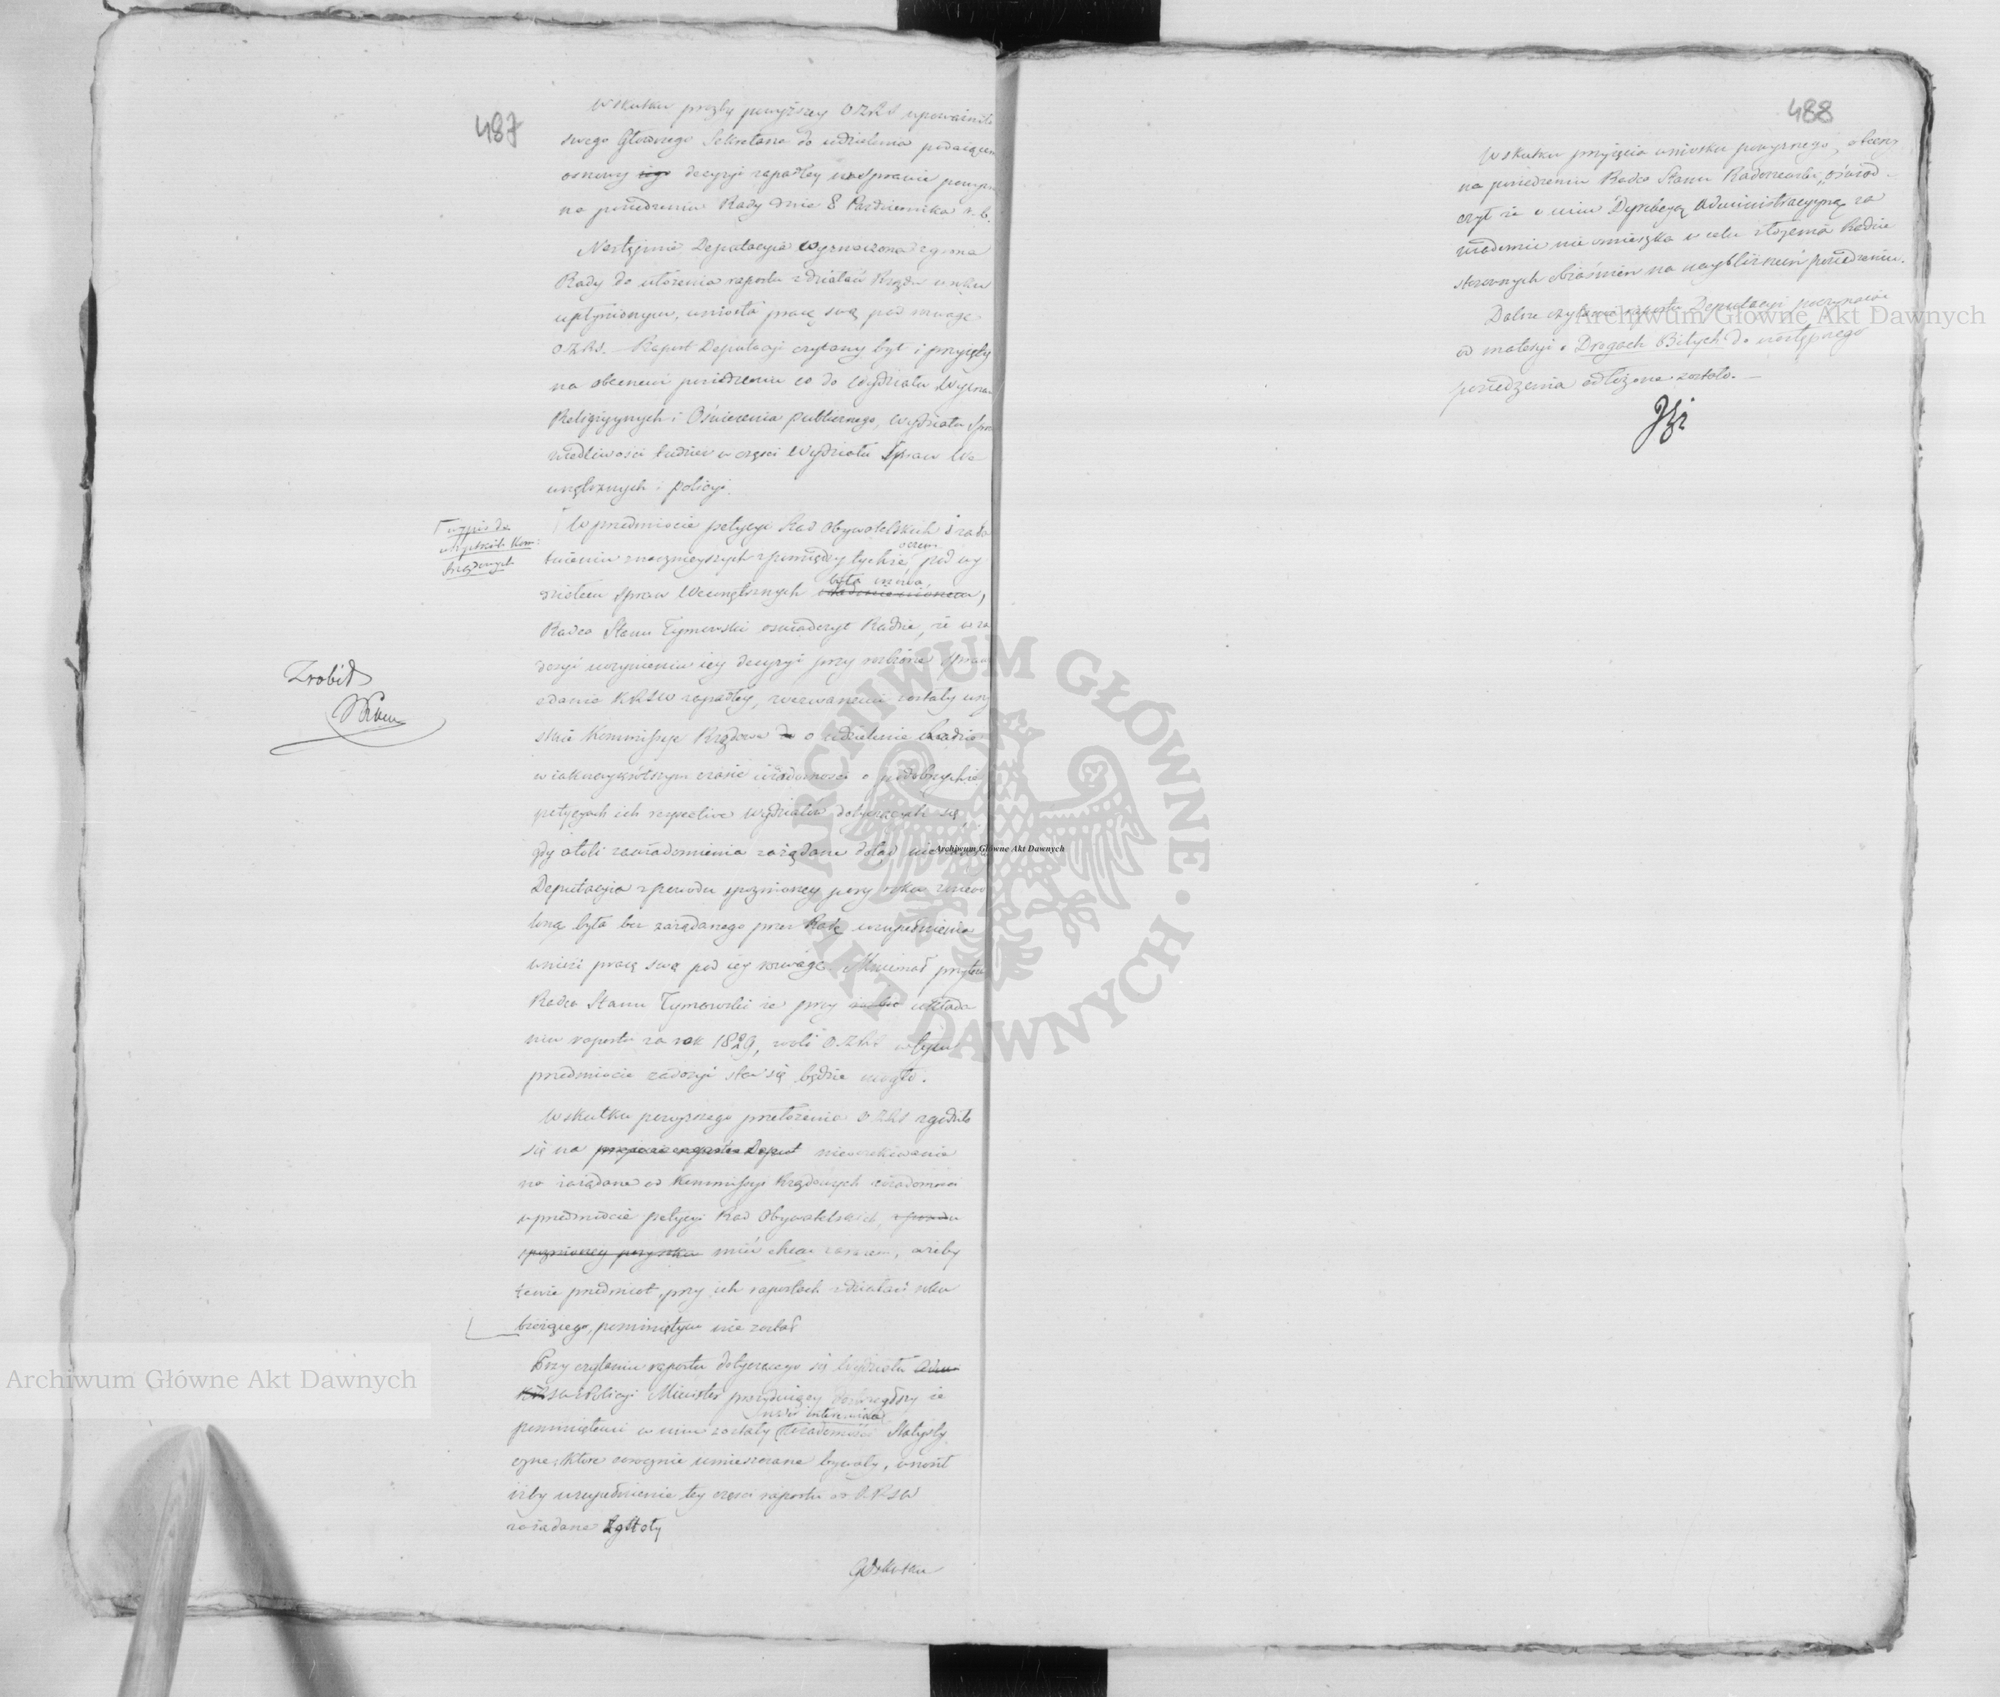 487
W skutku prozby powyższey OZRS upoważniło
swego Głównego Sekretarza do udzielenia podaiącem
osnowy decyzyi zapadłey w sprawie
na posiedzeniu Rady dnia 8 Października r. b.
Następnie Deputacyia wyznaczona z grona
Rady do ułożenia raportu z działań Rządu w roku
upłynionym, wniosła pracę swą pod uwagę
OZRS. Raport Deputacyi czytany był i przyięty
na obecnem posiedzeniu co do Wydziału Wyznań
Religiynych i Oświecenia publicznego, Wydziału Spra
wiedliwości tudzież w części Wydziału Spraw We
wnętrznych i policyi.
wypis do
wszystkich Kom:
Rządowych
W przedmiocie petycyi Rad Obywatelskich i zała
twienia znacznieyszych z pomiędzy tychże, o czem pod wy
działem Spraw Wewnętrznych była mowa,
Radca Stanu Tymowski oświadczył Radzie, że w za
dosyć uczynieniu iey decyzyi przy rozbiorze Spraw
ozdania KRSW zapadłey, wezwanemi zostały wszy
stkie Kommissye Rządowe o udzielenie Radzie
w iaknayprędszym czasie wiadomości o podobnychże
petycyach ich respective wydziałów dotyczących się,
gdy atoli zawiadomienia zażądane dotąd nie
Deputacyia z powodu spóźnioney pory roku zniewo
loną była bez zażądanego przez Radę uzupełnienia
wnieść pracę swą pod iey rozwagę. Mniemał przytem
Radca Stanu Tymowski że przy układa
niu raportu za rok 1829, woli OZRS w tym
przedmiocie zadosyć stać się będzie mogło.
Zrobić
W skutku powyższego przełożenia OZRS zgodziła
się na nieoczekiwanie
na zażądane od Kommissyi Rządowych wiadomości
w przedmiocie petycyi Rad Obywatelskich,
mieć chcąc zarazem, ażeby
tenże przedmiot, przy ich raportach z działań roku
bieżącego, pominiętym nie został
Przy czytaniu raportu dotyczącego się Wydziału
SW i Policyi Minister prezyduiący dostrzegłszy że
pominiętemi w nim zostały wiadomości Statysty
czne, które corocznie umieszczane bywały, wniósł
iżby uzupełnienia tey części raportu od KRSW
zażądane zostały
W skutku
488
W skutku przyięcia wniosku powyższego, obecny
na posiedzeniu Radca Stanu Radoszewski, oświad
czył że o nim Dyrekcyą Administracyyną za
wiadomić nie omieszka w celu złożenia Radzie
stosownych obiaśnień na nayblizszem posiedzeniu.
Dalsze czytanie raportu Deputacyi poczynaiąc
od materyi o Drogach Bitych do następnego
posiedzenia odłożone zostało. —